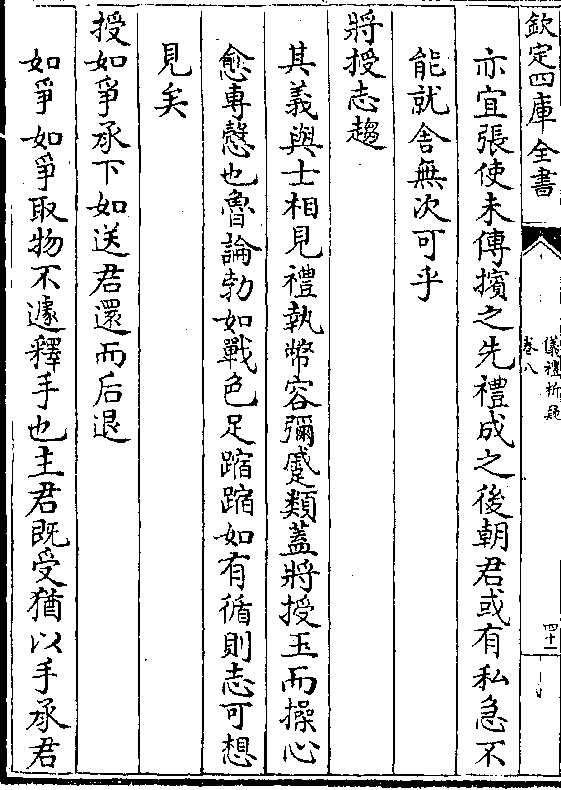 欽定四庫全書
儀禮析疑
卷八
四十二
亦宜張使未傳擯之先禮成之後朝君或有私急不
能就舍無次可乎
將授志趨
其義與士相見禮執幣容彌蹙類蓋將授玉而操心
愈專慤也魯論勃如戰色足蹜蹜如有循則志可想
見矣
授如爭承下如送君還而后退
如爭如爭取物不遽釋手也主君既受猶以手承君